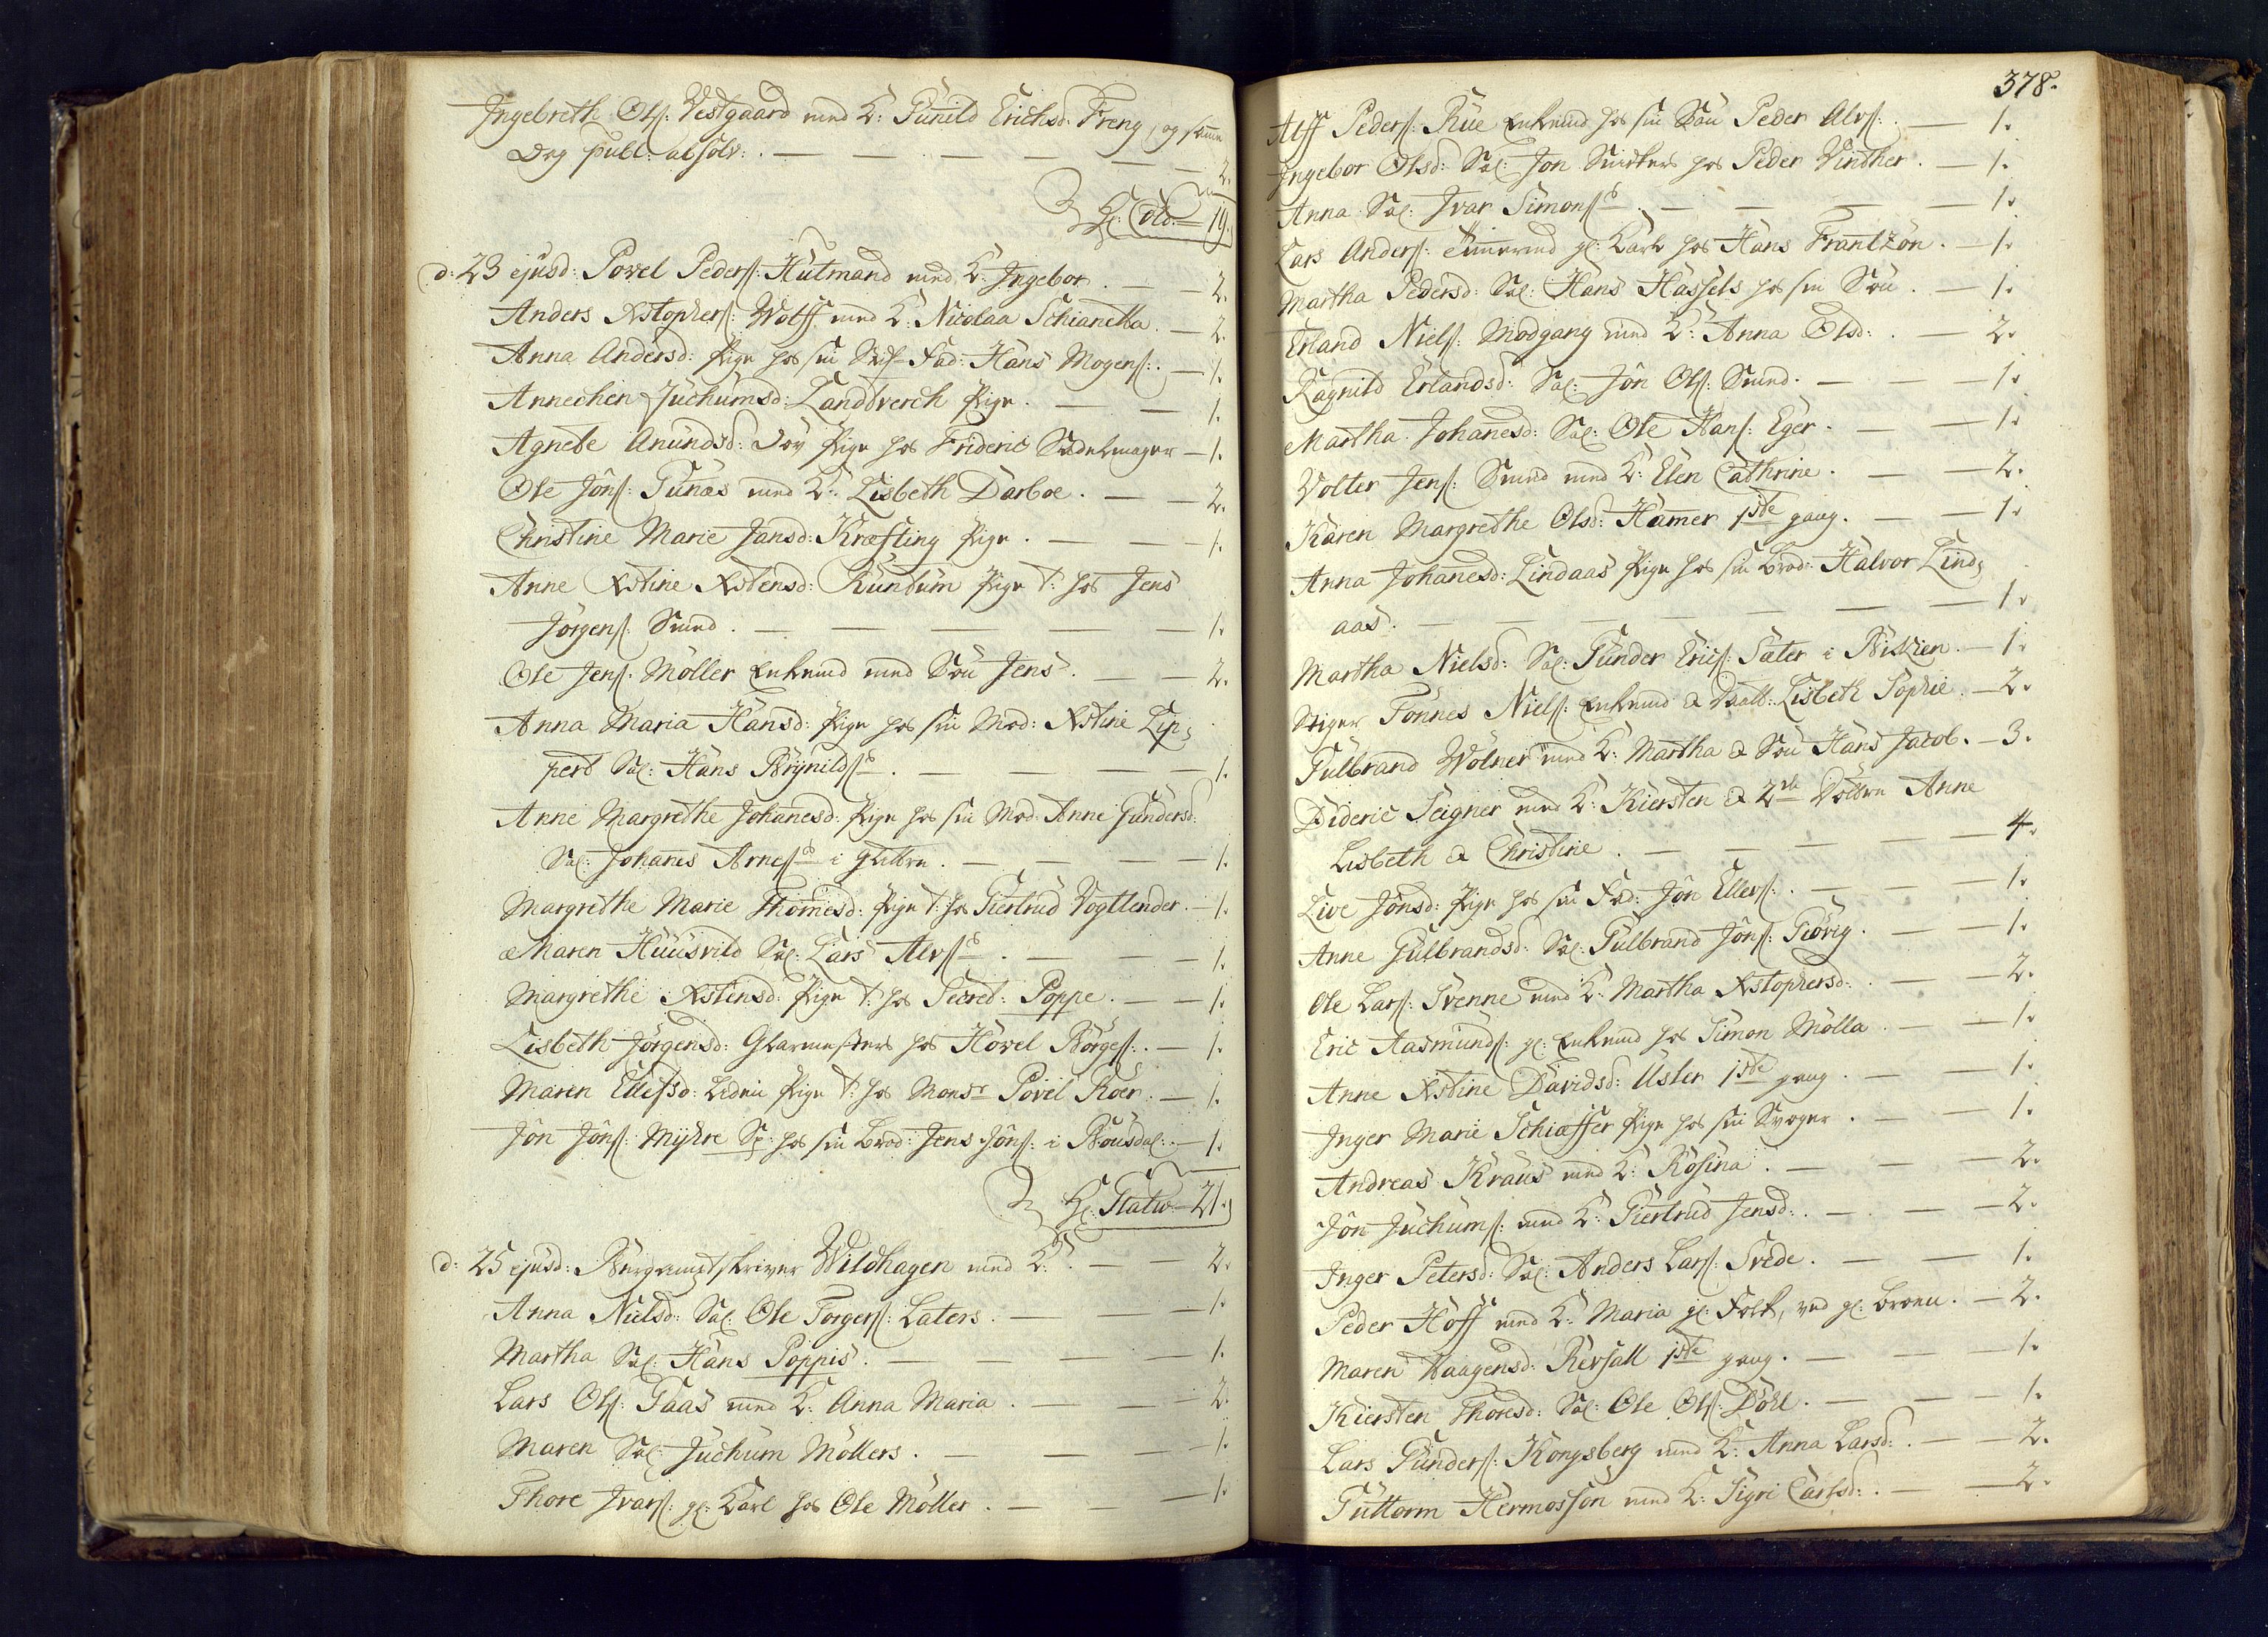 Ingebreth Ols: Vestgaard med K: Gunild Erichsd: Freng, og samme
Dag publ: absolv: . — — — — — 2.
H: Cold. — 19.
d: 23 ejusd: Povel Peders: Hutmand med K: Ingebor . — — 2.
Anders Xstophers: Wolff med K: Nicolaa Schianetta . — 2.
Anna Andersd: Pige hos sin Stif-Fad: Hans Mogens: . — 1.
Annechen Juchumsd: Landbverch Pige . — — 1.
Agnete Anundsd: Døv Pige hos Frideric Sadelmager — 1.
Ole Jons: Tunæs med K: Lisbeth Darboe . — — 2.
Christine Marie Jansd: Kræfting Pige . — — — 1.
Anne Xstine Xstensd: Runtum Pige t: hos Jens
Jörgens: Smed . — — — — — 1.
Ole Jens: Möller Enkemd med Sön Jens . — — 2.
Anna Maria Hansd: Pige hos sin Mod: Xstine Lip-
pert Sal: Hans Brynilds . — — — — 1.
Anne Margrethe Johanesd: Pige hos sin Mod: Anne Gundersd:
Sal: Johanes Arnes i Glittre . — — — 1.
Margrethe Marie Thomesd: Pige t: hos Giertrud Vogtlender . — 1.
Maren Huusvild Sal: Lars Alvs . — — — 1.
Margrethe Xstensd: Pige t: hos Secret: Poppe . — — 1.
Lisbeth Jörgensd: Glarmesters hos Hovel Börges: . — 1.
Maren Ellefsd: Liden Pige t: hos Monsr Povel Roer . — 1.
Jon Jons: Myhre Sp: hos sin Brod: Jens Jons: i Bousdal: . — 1.
H: Statw — 21.
d: 25 ejusd: Bergamptskriver Wildhagen med K: . — — 2.
Anna Nielsd: Sal: Ole Torgers: Laters . — — 1.
Martha Sal: Hans Poppis . — — — 1.
Lars Ols: Faas med K: Anna Maria . — — 2.
Maren Sal: Juchum Möllers . — — — 1.
Thore Ivars: gl: Karl hos Ole Möller . — — 1.
378.
Alff Peders: Rüe Enkemd hos sin Sön Peder Alvs: . — 1.
Ingebor Olsd: Sal: Jon Snidkers hos Peder Vindher . — 1.
Anna Sal: Ivar Simons . — — — — 1.
Lars Anders: Timmermd gl: Karl hos Hans Frantzön . — 1.
Martha Pedersd: Sal: Hans Hassels hos sin Sön . — 1.
Erland Niels: Modgang med K: Anna Olsd: . — 2.
Ragnild Erlandsd: Sal: Jon Ols: Smed . — — — 1.
Martha Johanesd: Sal: Ole Hans: Eger . — — 1.
Volter Jens: Smed med K: Elen Cathrine . — — 2.
Karen Margrethe Olsd: Hamer 1ste gang . — — 1.
Anna Johanesd: Lindaas Pige hos sin Brod: Halvor Lind-
aas . — — — — — 1.
Martha Nielsd: Sal: Gunder Erics: Sater i Niskien . — 1.
Stiger Tönnes Niels: Enkemd & Datt: Lisbeth Sophie . — 2.
Gulbrand Wölner med K: Martha & Sön Hans Jacob . — 3.
Dideric Seigner med K: Kiersten & 2de Döttre Anne
Lisbeth & Christine . — — — — 4.
Live Jonsd: Pige hos sin Fad: Jon Ellevs: . — — 1.
Anne Gulbrandsd: Sal: Gulbrand Jons: Giövig . — — 1.
Ole Lars: Svenne med K: Martha Xstophersd: . — — 2.
Eric Aasmunds: gl: Enkemd hos Simon Molla . — — 1.
Anne Xstine Davidsd: Uster 1ste gang . — — 1.
Inger Marie Schiaffer Pige hos sin Svoger . — — 1.
Andreas Kraus med K: Rosina . — — — 2.
Jon Juchums: med K: Giertrud Jensd: . — — 2.
Inger Petersd: Sal: Anders Lars: Svede . — — 1.
Peder Hoff med K: Maria gl: Folk, ved gl: broen . — 2.
Maren Haagensd: Revfall 1ste gang . — — 1.
Kiersten Thoresd: Sal: Ole Ols: Döhl . — — 1.
Lars Gunders: Kongsberg med K: Anna Larsd: . — — 2.
Guttorm Hermosson med K: Sigri Carlsd: . — — 2.